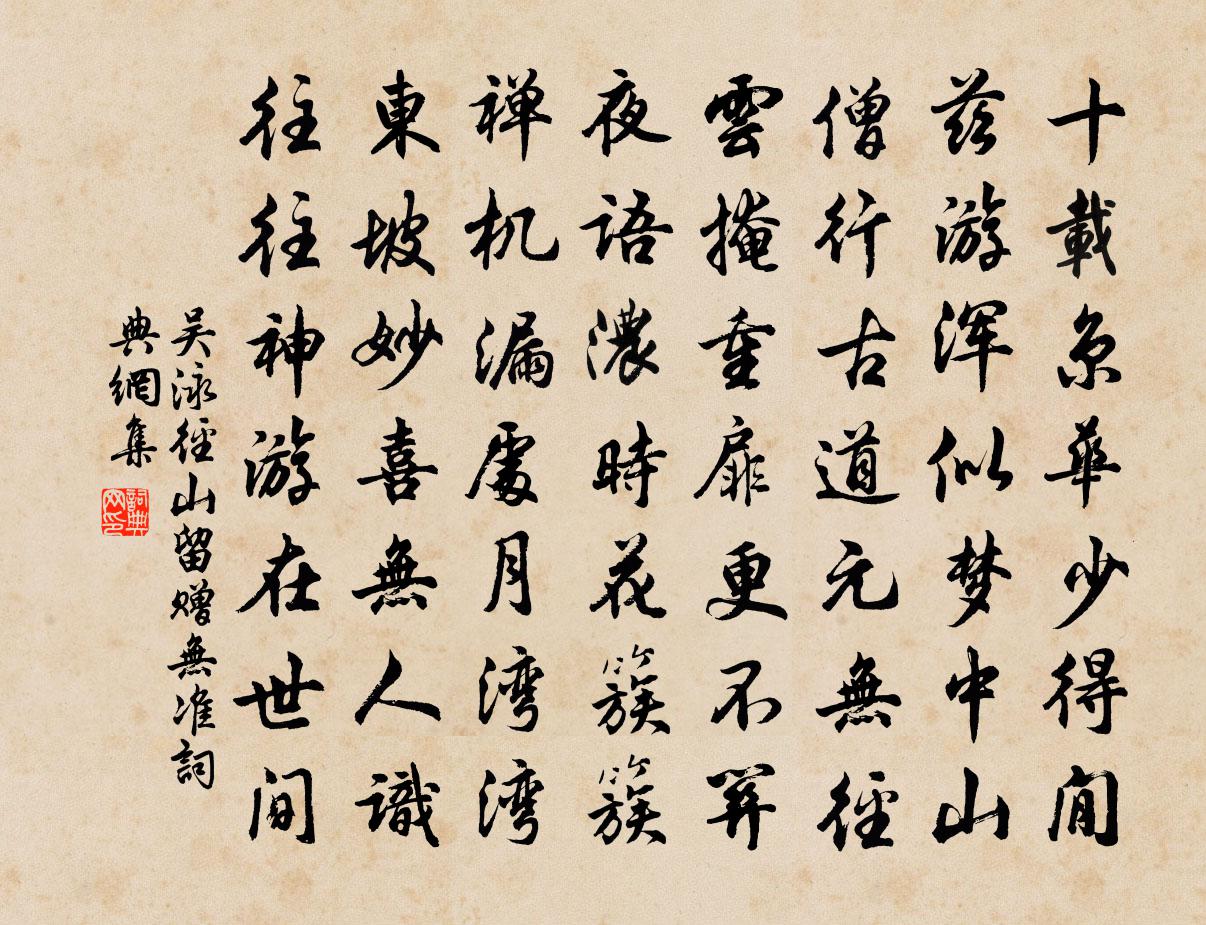 十載京華少得閒
茲游浑似梦中山
僧行古道元無徑
雲掩重扉更不關
夜語濃時花簇簇
禅机漏處月湾湾
東坡妙喜無人識
往往神游在世間
吴泳徑山留贈無准詞
典網集
詞典网印